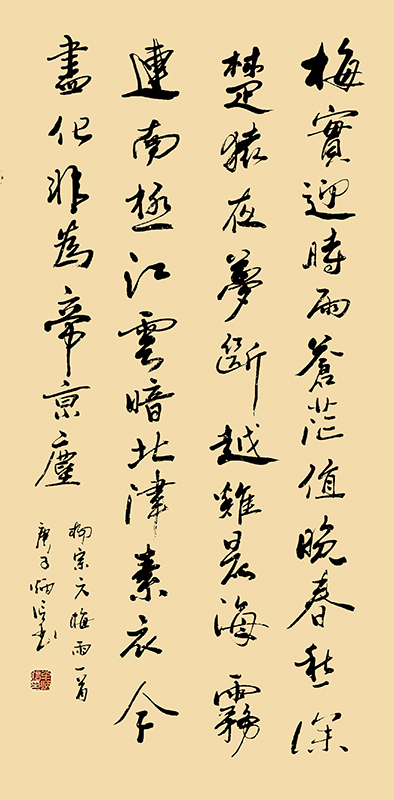 梅實迎時雨蒼茫值晚春愁深
楚猿夜夢斷越雞晨海霧
連南極江雲暗北津素衣今
盡化非為帝京塵
柳宗元梅雨一首
庚子炳書